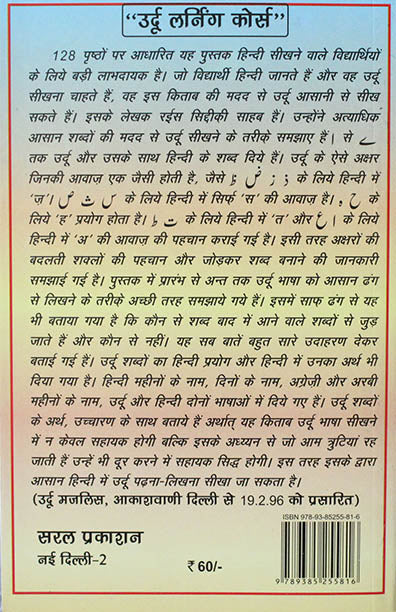 “उर्दू लर्निंग कोर्स”
128 पृष्ठों पर आधारित यह पुस्तक हिन्दी सीखने वाले विद्यार्थियों
के लिये बड़ी लाभदायक है। जो विद्यार्थी हिन्दी जानते हैं और वह उर्दू
सीखना चाहते हैं, वह इस किताब की मदद से उर्दू आसानी से सीख
सकते हैं। इसके लेखक रईस सिद्दीक़ी साहब हैं। उन्होंने अत्याधिक
आसान शब्दों की मदद से उर्दू सीखने के तरीक़े समझाए हैं। ا से ے
तक उर्दू और उसके साथ हिन्दी के शब्द दिये हैं। उर्दू के ऐसे अक्षर
जिनकी आवाज़ एक जैसी होती है, जैसे ذ ز ض ظ के लिये हिन्दी में
'ज़'। س ث ص के लिये हिन्दी में सिर्फ़ 'स' की आवाज़ है। ح ہ के
लिये 'ह' प्रयोग होता है। ت ط के लिये हिन्दी में 'त' और ا ع के लिये
हिन्दी में 'अ' की आवाज़ की पहचान कराई गई है। इसी तरह अक्षरों की
बदलती शक्लों की पहचान और जोड़कर शब्द बनाने की जानकारी
समझाई गई है। पुस्तक में प्रारंभ से अन्त तक उर्दू भाषा को आसान ढंग
से लिखने के तरीक़े अच्छी तरह समझाये गये हैं। इसमें साफ़ ढंग से यह
भी बताया गया है कि कौन से शब्द बाद में आने वाले शब्दों से जुड़
जाते हैं और कौन से नहीं। यह सब बातें बहुत सारे उदाहरण देकर
बताई गई हैं। उर्दू शब्दों का हिन्दी प्रयोग और हिन्दी में उनका अर्थ भी
दिया गया है। हिन्दी महीनों के नाम, दिनों के नाम, अग्रेज़ी और अरबी
महीनों के नाम, उर्दू और हिन्दी दोनों भाषाओं में दिए गए हैं। उर्दू शब्दों
के अर्थ, उच्चारण के साथ बताये हैं अर्थात् यह किताब उर्दू भाषा सीखने
में न केवल सहायक होगी बल्कि इसके अध्ययन से जो आम त्रुटियां रह
जाती हैं उन्हें भी दूर करने में सहायक सिद्ध होगी। इस तरह इसके द्वारा
आसान हिन्दी में उर्दू पढ़ना-लिखना सीखा जा सकता है।
(उर्दू मजलिस, आकाशवाणी दिल्ली से 19.2.96 को प्रसारित)
सरल प्रकाशन
नई दिल्ली-2
₹ 60/-
ISBN 978-93-85255-81-6
9 789385 255816